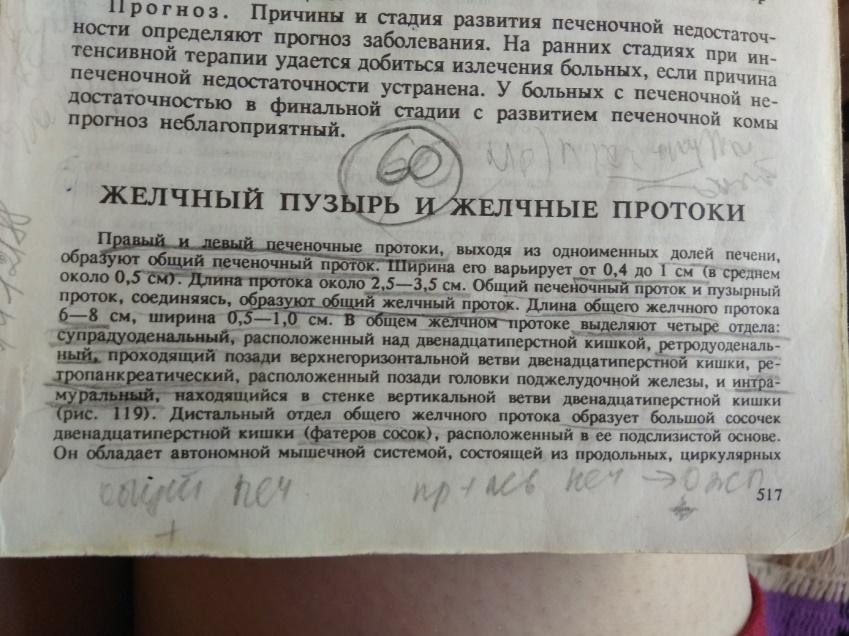 Прогноз. Причины и стадия развития печеночной недостаточ-
ности определяют прогноз заболевания. На ранних стадиях при ин-
тенсивной терапии удается добиться излечения больных, если причина
печеночной недостаточности устранена. У больных с печеночной не-
достаточностью в финальной стадии с развитием печеночной комы
прогноз неблагоприятный.
60
ЖЕЛЧНЫЙ ПУЗЫРЬ И ЖЕЛЧНЫЕ ПРОТОКИ
Правый и левый печеночные протоки, выходя из одноименных долей печени,
образуют общий печеночный проток. Ширина его варьирует от 0,4 до 1 см (в среднем
около 0,5 см). Длина протока около 2,5—3,5 см. Общий печеночный проток и пузырный
проток, соединяясь, образуют общий желчный проток. Длина общего желчного протока
6—8 см, ширина 0,5—1,0 см. В общем желчном протоке выделяют четыре отдела:
супрадуоденальный, расположенный над двенадцатиперстной кишкой, ретродуоденаль-
ный, проходящий позади верхнегоризонтальной ветви двенадцатиперстной кишки, ре-
тропанкреатический, расположенный позади головки поджелудочной железы, и интра-
муральный, находящийся в стенке вертикальной ветви двенадцатиперстной кишки
(рис. 119). Дистальный отдел общего желчного протока образует большой сосочек
двенадцатиперстной кишки (фатеров сосок), расположенный в ее подслизистой основе.
Он обладает автономной мышечной системой, состоящей из продольных, циркулярных
общий печ
пр + лев печ →
+
517